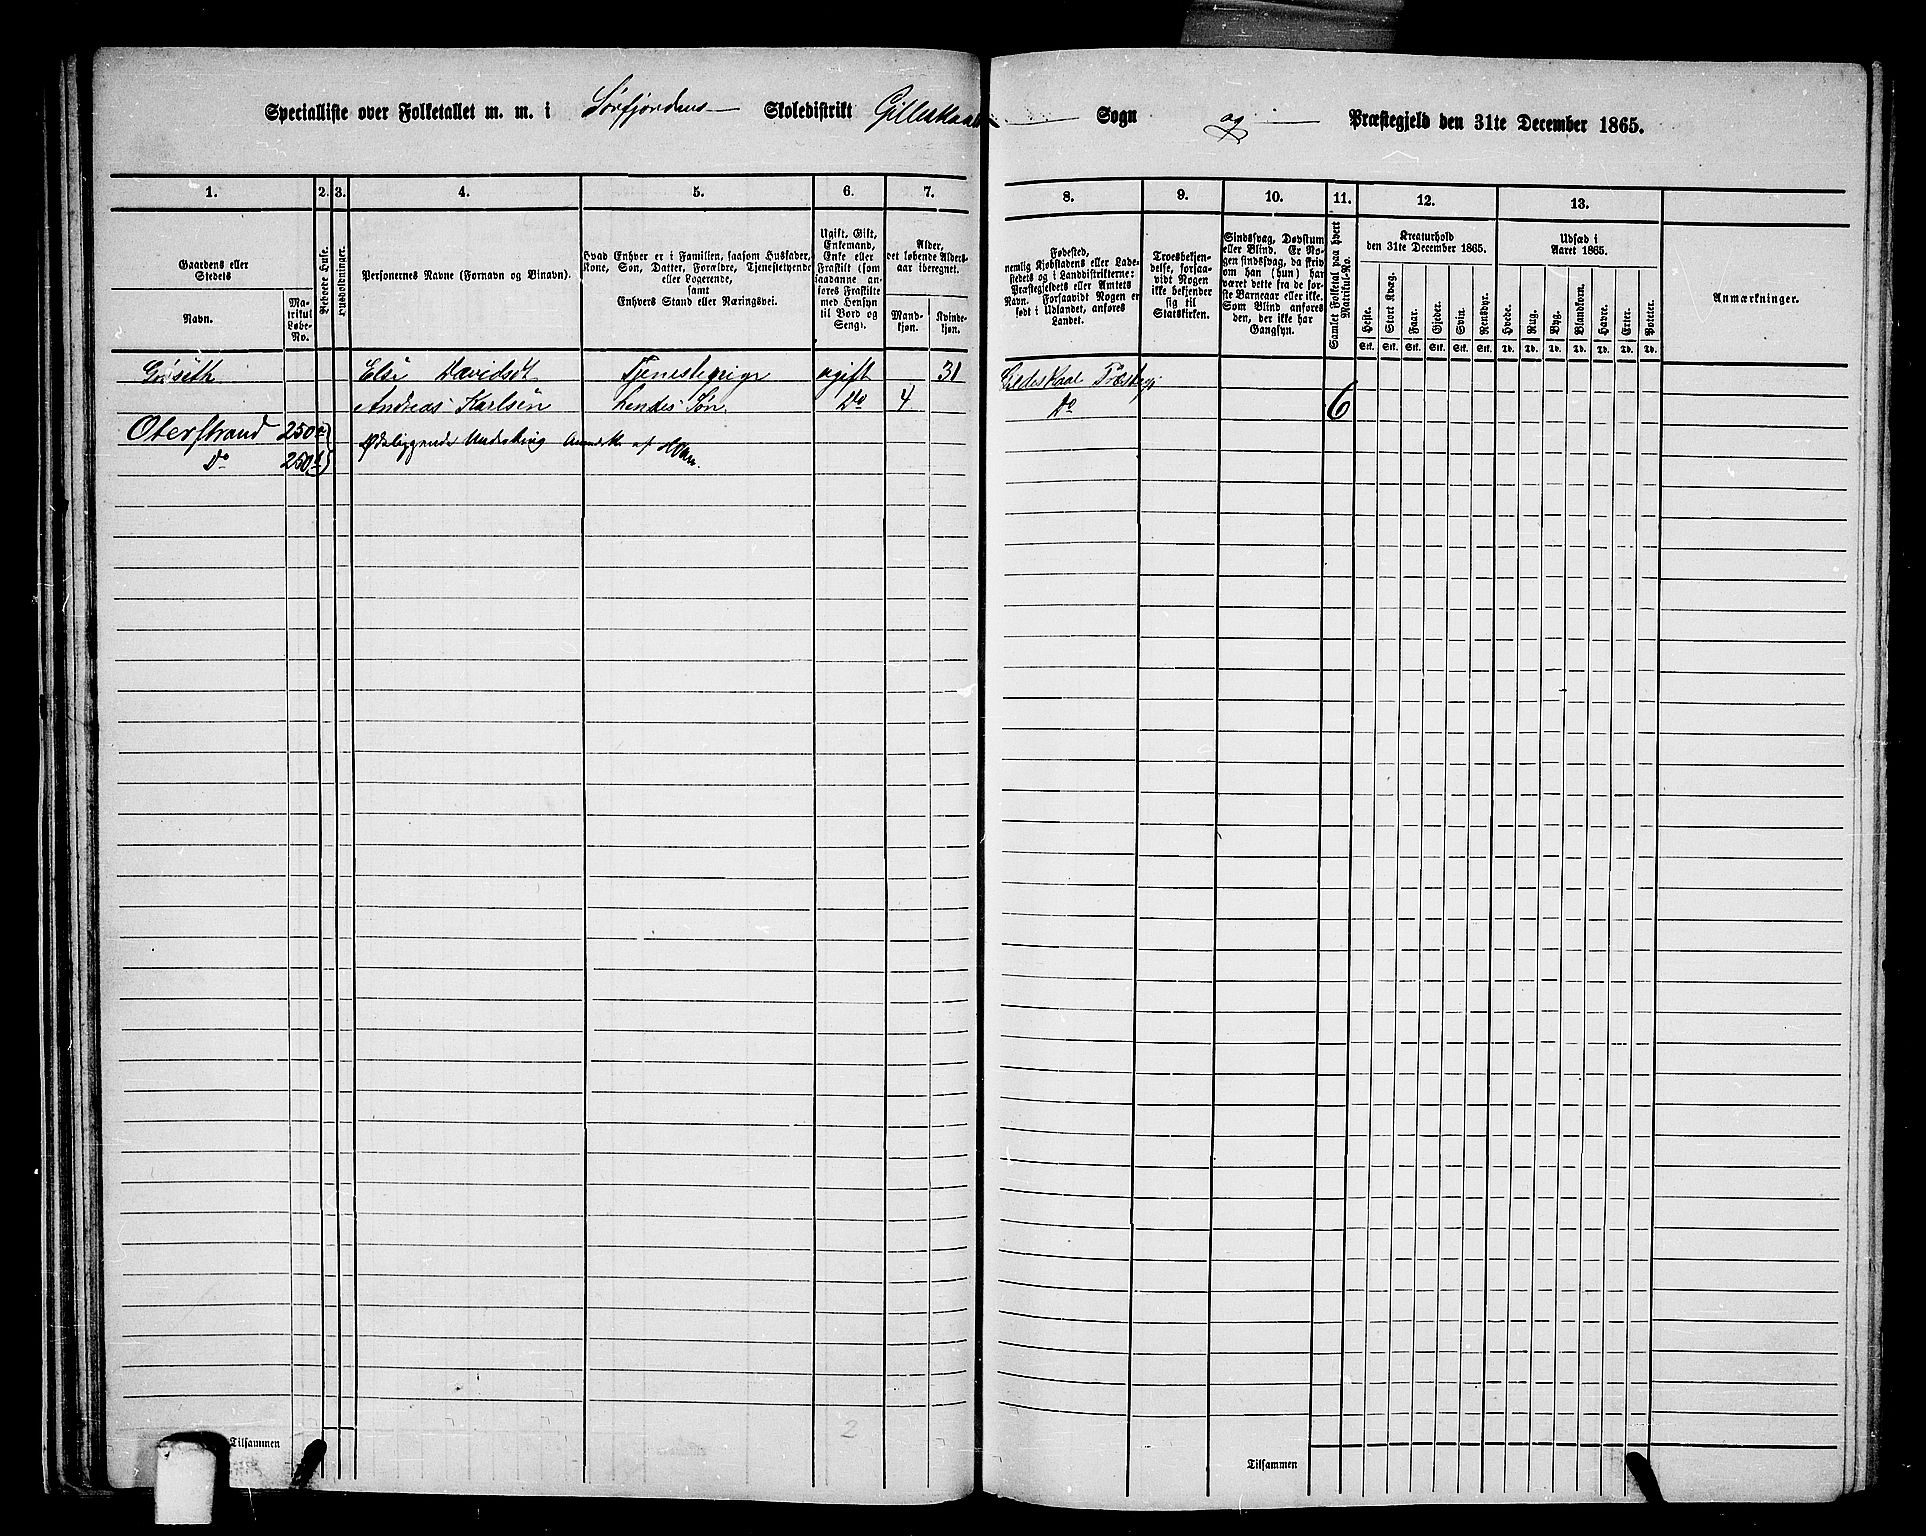 Specialliste over Folketallet m. m. i Sørfjordens Skoledistrikt Gilleskaal Sogn og Præstegjeld den 31te December 1865.
1. 2. 3. 4. 5. 6. 7. 8. 9. 10. 11. 12. 13.
Gaardens eller Stedets
Navn.
Matrikul Løbe-No.
Beboede Huse.
Husholdninger.
Personernes Navne (Fornavn og Binavn).
Hvad Enhver er i Familien, saasom Husfader, Kone, Søn, Datter, Forældre, Tjenestetyende eller Logerende, samt Enhvers Stand eller Næringsvei.
Ugift, Gift, Enkemand, Enke eller Fraskilt (som saadanne anføres Fraskilte med Hensyn til Bord og Seng).
Alder, det løbende Aldersaar iberegnet.
Mandkjøn. Kvindekjøn.
Fødested, nemlig Kjøbstadens eller Ladestedets og i Landdistrikterne: Præstegjeldets eller Amtets Navn. Forsaavidt Nogen er født i Udlandet, anføres Landet.
Troesbekjendelse, forsaavidt Nogen ikke bekjender sig til Statskirken.
Sindssvag, Døvstum eller Blind. Er Nogen sindssvag, da skrives om han (hun) har været dette fra de første Barneaar eller ikke. Som Blind anføres den, der ikke har Gangsyn.
Samlet Folketal paa hvert Matrikul-No.
Kreaturhold den 31te December 1865.
Heste. Stort Kvæg. Faar. Gjeder. Svin. Rensdyr.
Stk. Stk. Stk. Stk. Stk. Stk.
Udsæd i Aaret 1865.
Hvede. Rug. Byg. Blandkorn. Havre. Erter. Poteter.
Td. Td. Td. Td. Td. Td. Td.
Anmærkninger.
Elsi Davidsdt Tjenestepige ugift 31 Gildeskaal Præstegj
Andreas Karlsen Søn Do 4 Do 6
Oterstrand 250a
Do 250b
Ødeliggende
Tilsammen
Tilsammen
2